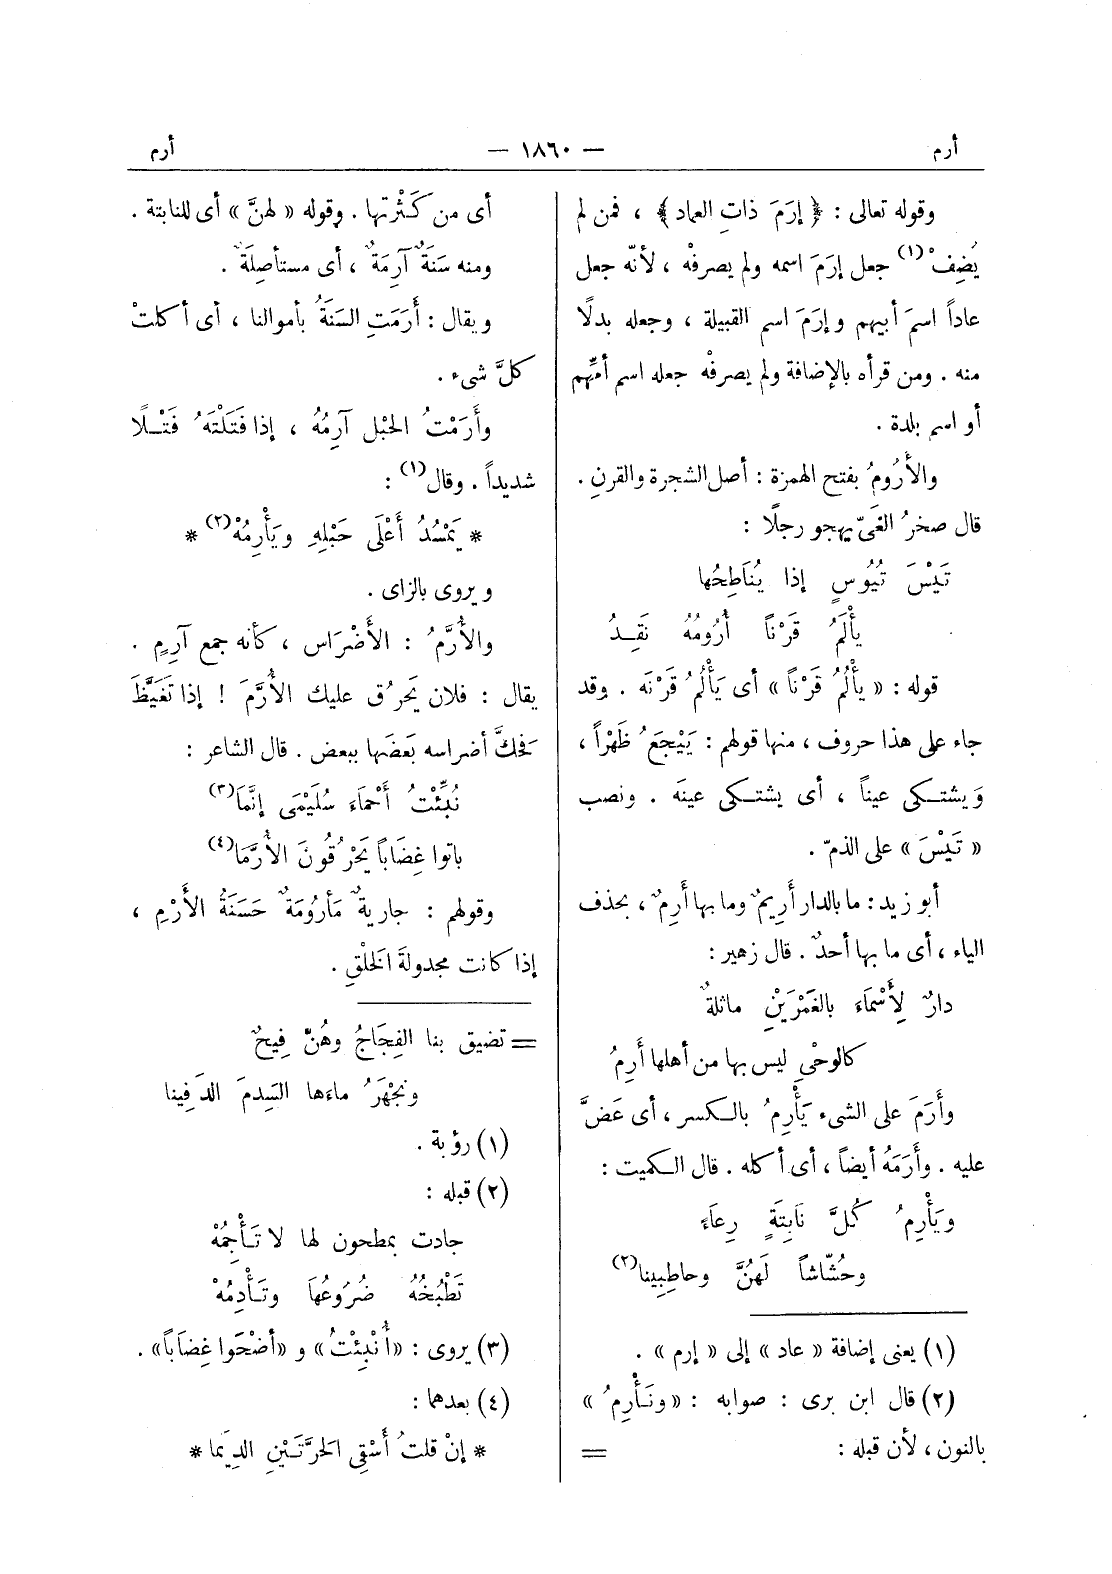 أرم
— ١٨٦٠ —
أرم
وقوله تعالى : ﴿ إرَمَ ذاتِ العماد ﴾ ، فمن لم
يُضِفْ (١) جعل إرَمَ اسمه ولم يصرفْه ، لأنّه جعل
عاداً اسمَ أبيهم وإرَمَ اسم القبيلة ، وجعله بدلًا
منه . ومن قرأه بالإضافة ولم يصرفْه جعله اسم أمِّهم
أو اسم بلدة .
والأَرُومُ بفتح الهمزة : أصل الشجرة والقرنِ .
قال صخرُ الغَىّ يهجو رجلًا :
تَيْسَ تُيُوسٍ إذا يُنَاطِحُها
يأْلَمُ قَرْناً أُرُومُهُ نَقِدُ
قوله : « يأْلُمُ قَرْناً » أى يَأْلُمُ قَرْنَه . وقد
جاء على هذا حروف ، منها قولهم : يَيْجَعُ ظَهْراً ،
وَيشتكى عيناً ، أى يشتكى عينَه . ونصب
« تَيْسَ » على الذمّ .
أبو زيد : ما بالدار أَرِيمٌ وما بها أَرِمٌ ، بحذف
الياء ، أى ما بها أحدٌ . قال زهير :
دارٌ لِأَسْمَاءَ بالغَمْرَيْنِ ماثلةٌ
كالوحْىِ ليس بها من أهلها أَرِمُ
وأَرَمَ على الشىء يَأْرِمُ بالكسر ، أى عَضَّ
عليه . وأَرَمَهُ أيضاً ، أى أكله . قال الكميت :
ويَأْرِمُ كُلَّ نَابِتَةٍ رِعَاءً
وحُشّاشاً لَهُنَّ وحاطِبِينا (٢)
(١) يعنى إضافة « عاد » إلى « إرم » .
(٢) قال ابن برى : صوابه : « ونَأْرِمُ »
بالنون ، لأن قبله : =
أى من كَثْرتها . وقوله « لهنَّ » أى للنابتة .
ومنه سَنَةٌ آرِمَةٌ ، أى مستأصِلَةٌ .
ويقال : أَرَمَتِ السَنَةُ بأموالنا ، أى أكلتْ
كلَّ شىء .
وأَرَمْتُ الحَبْل آرِمُهُ ، إذا فَتَلْتَهُ فَتْلًا
شديداً . وقال (١) :
* يَمْسُدُ أَعْلَى حَبْلِهِ ويَأْرِمُهْ (٢) *
ويروى بالزاى .
والأُرَّمُ : الأَضْرَاس ، كأنه جمع آرِمٍ .
يقال : فلان يَحرُق عليك الأُرَّمَ ! إذا تَغَيَّظَ
فحَكَّ أضراسه بَعَضَها ببعض . قال الشاعر :
نُبِّئْتُ أَحْمَاءَ سُلَيْمَى إنَّمَا (٣)
باتوا غِضَاباً يَحْرُقُونَ الأُرَّمَا (٤)
وقولهم : جاريةٌ مَأرُومَةٌ حَسَنَةُ الأَرْمِ ،
إذا كانت مجدولةَ الخَلْقِ .
= تضيق بنا الفِجَاجُ وهُنّ فِيحٌ
ونَجْهَرُ ماءها السَدِمَ الدَفِينا
(١) رؤبة .
(٢) قبله :
جادت بمطحون لها لا تَأْجِمُهْ
تَطْبُخُهُ ضُرُوعُهَا وتَأْدِمُهْ
(٣) يروى : «أُنْبِئْتُ» و «أضْحَوا غِضَاباً» .
(٤) بعدهما :
* إنْ قلتُ أَسْقِى الحَرَّتَيْنِ الدِيَما *